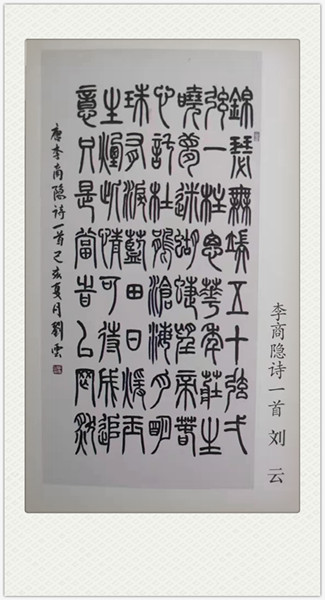 錦瑟無端五十弦弌
弦一柱思華年莊生
曉夢迷蝴蝶望帝春
心託杜鵑滄海月明
珠有淚藍田日暖玉
生煙此情可待成追
意只是當旹已罔然
唐李商隐诗一首己亥夏月劉雲
李商隐诗一首 刘云